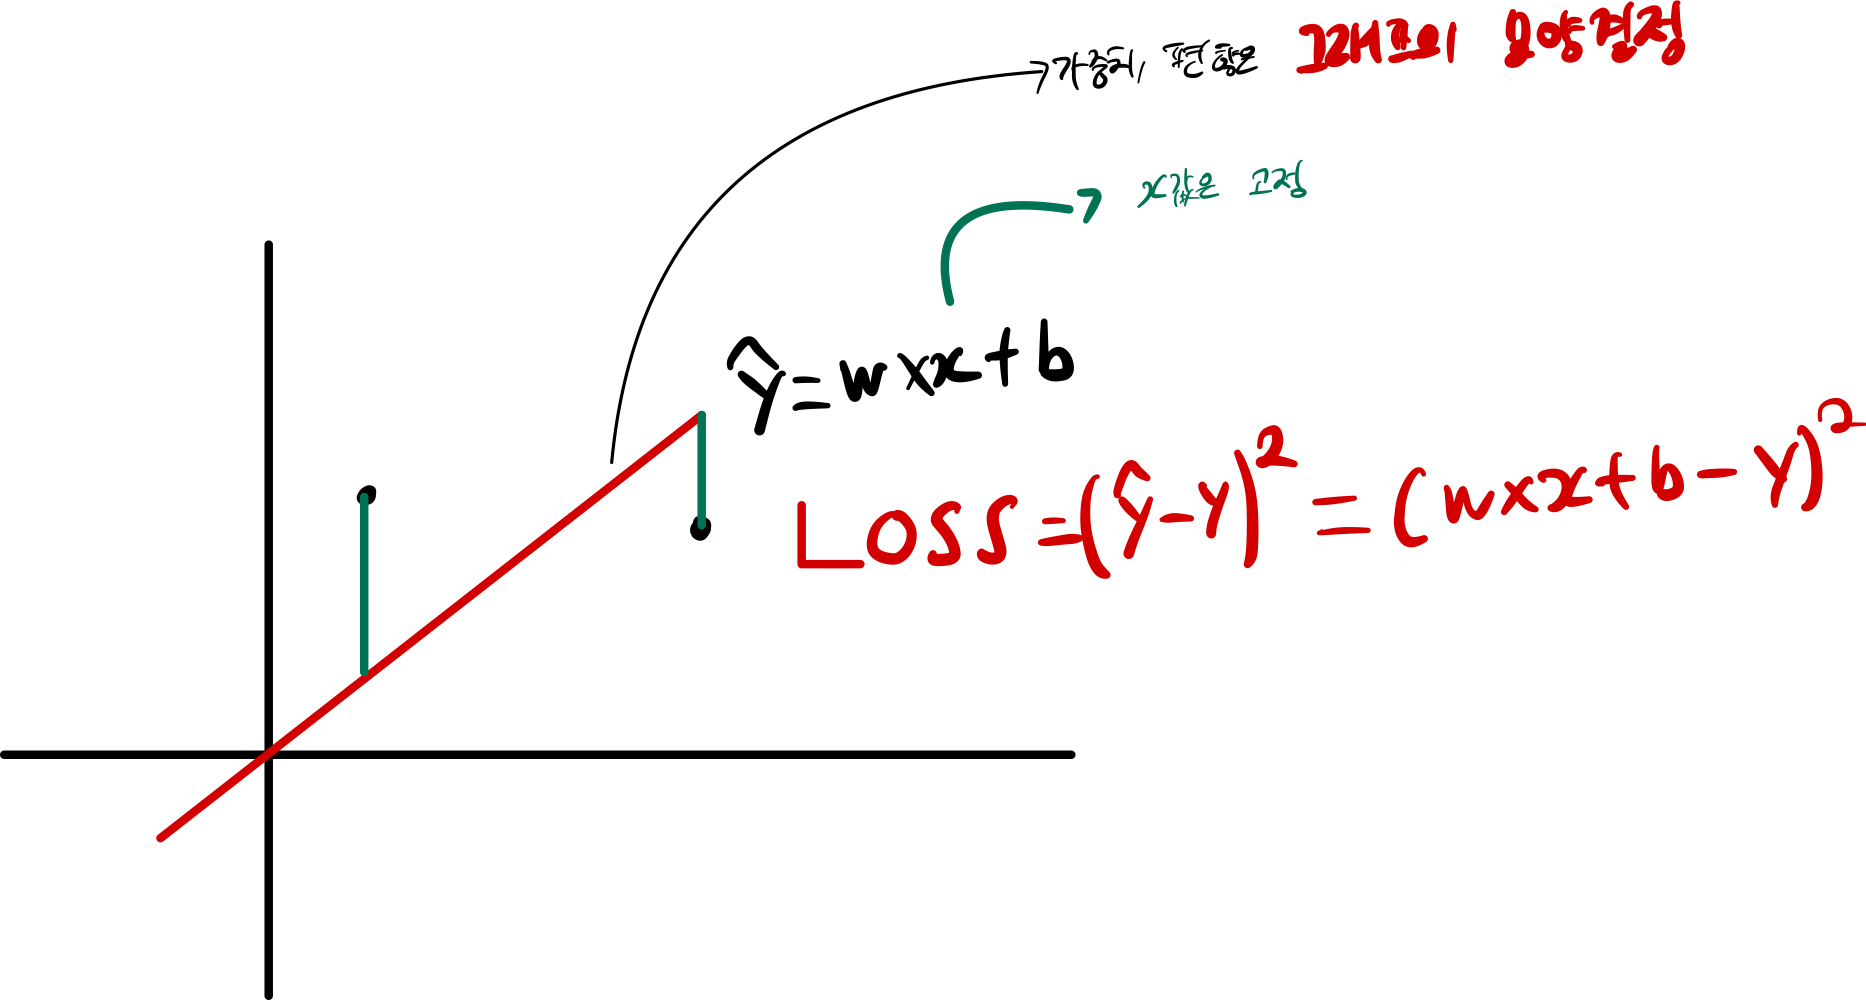 가중치, 편향은 그래프의 모양결정
x값은 고정
ŷ = w×x + b
LOSS = (ŷ-y)² = (w×x+b-y)²